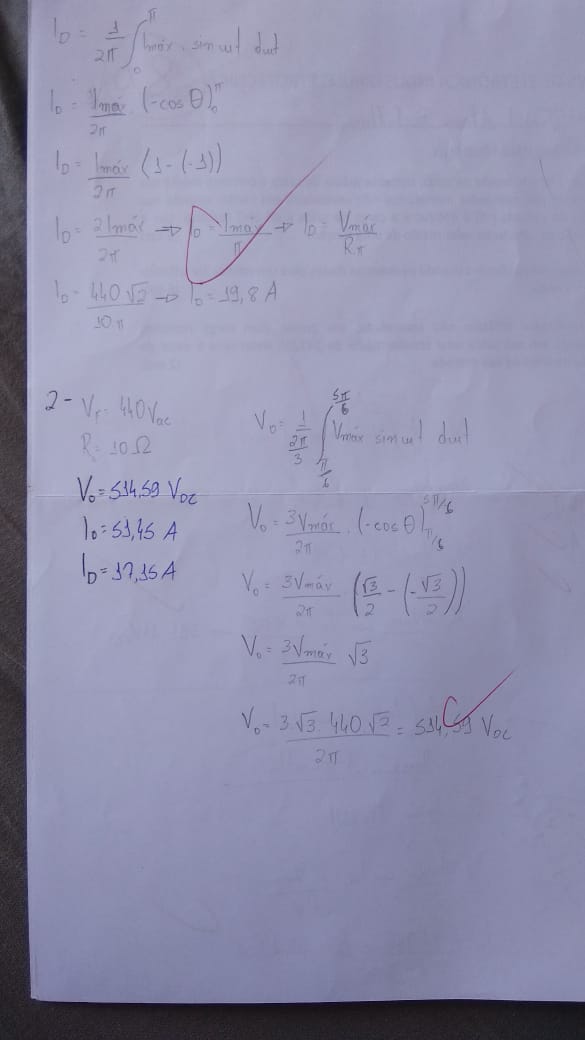 I₀ = 1/2π ∫₀^π Imáx. sin wt dwt
I₀ = Imáx/2π . (-cos θ)₀^π
I₀ = Imáx/2π (1-(-1))
I₀ = 2Imáx/2π → I₀ = Imáx/π → I₀ = Vmáx/Rπ
I₀ = 440√2/10π → I₀ = 19,8 A
2- VF = 440Vac
R = 10Ω
V₀ = 514,59 VDC
I₀ = 51,45 A
ID = 17,15 A
V₀ = 1/(2π/3) ∫π/6^5π/6 Vmáx sin wt dwt
V₀ = 3Vmáx/2π . (-cos θ)π/6^5π/6
V₀ = 3Vmáx/2π (√3/2 - (-√3/2))
V₀ = 3Vmáx/2π √3
V₀ = 3.√3.440.√2/2π = 514,59 VDC